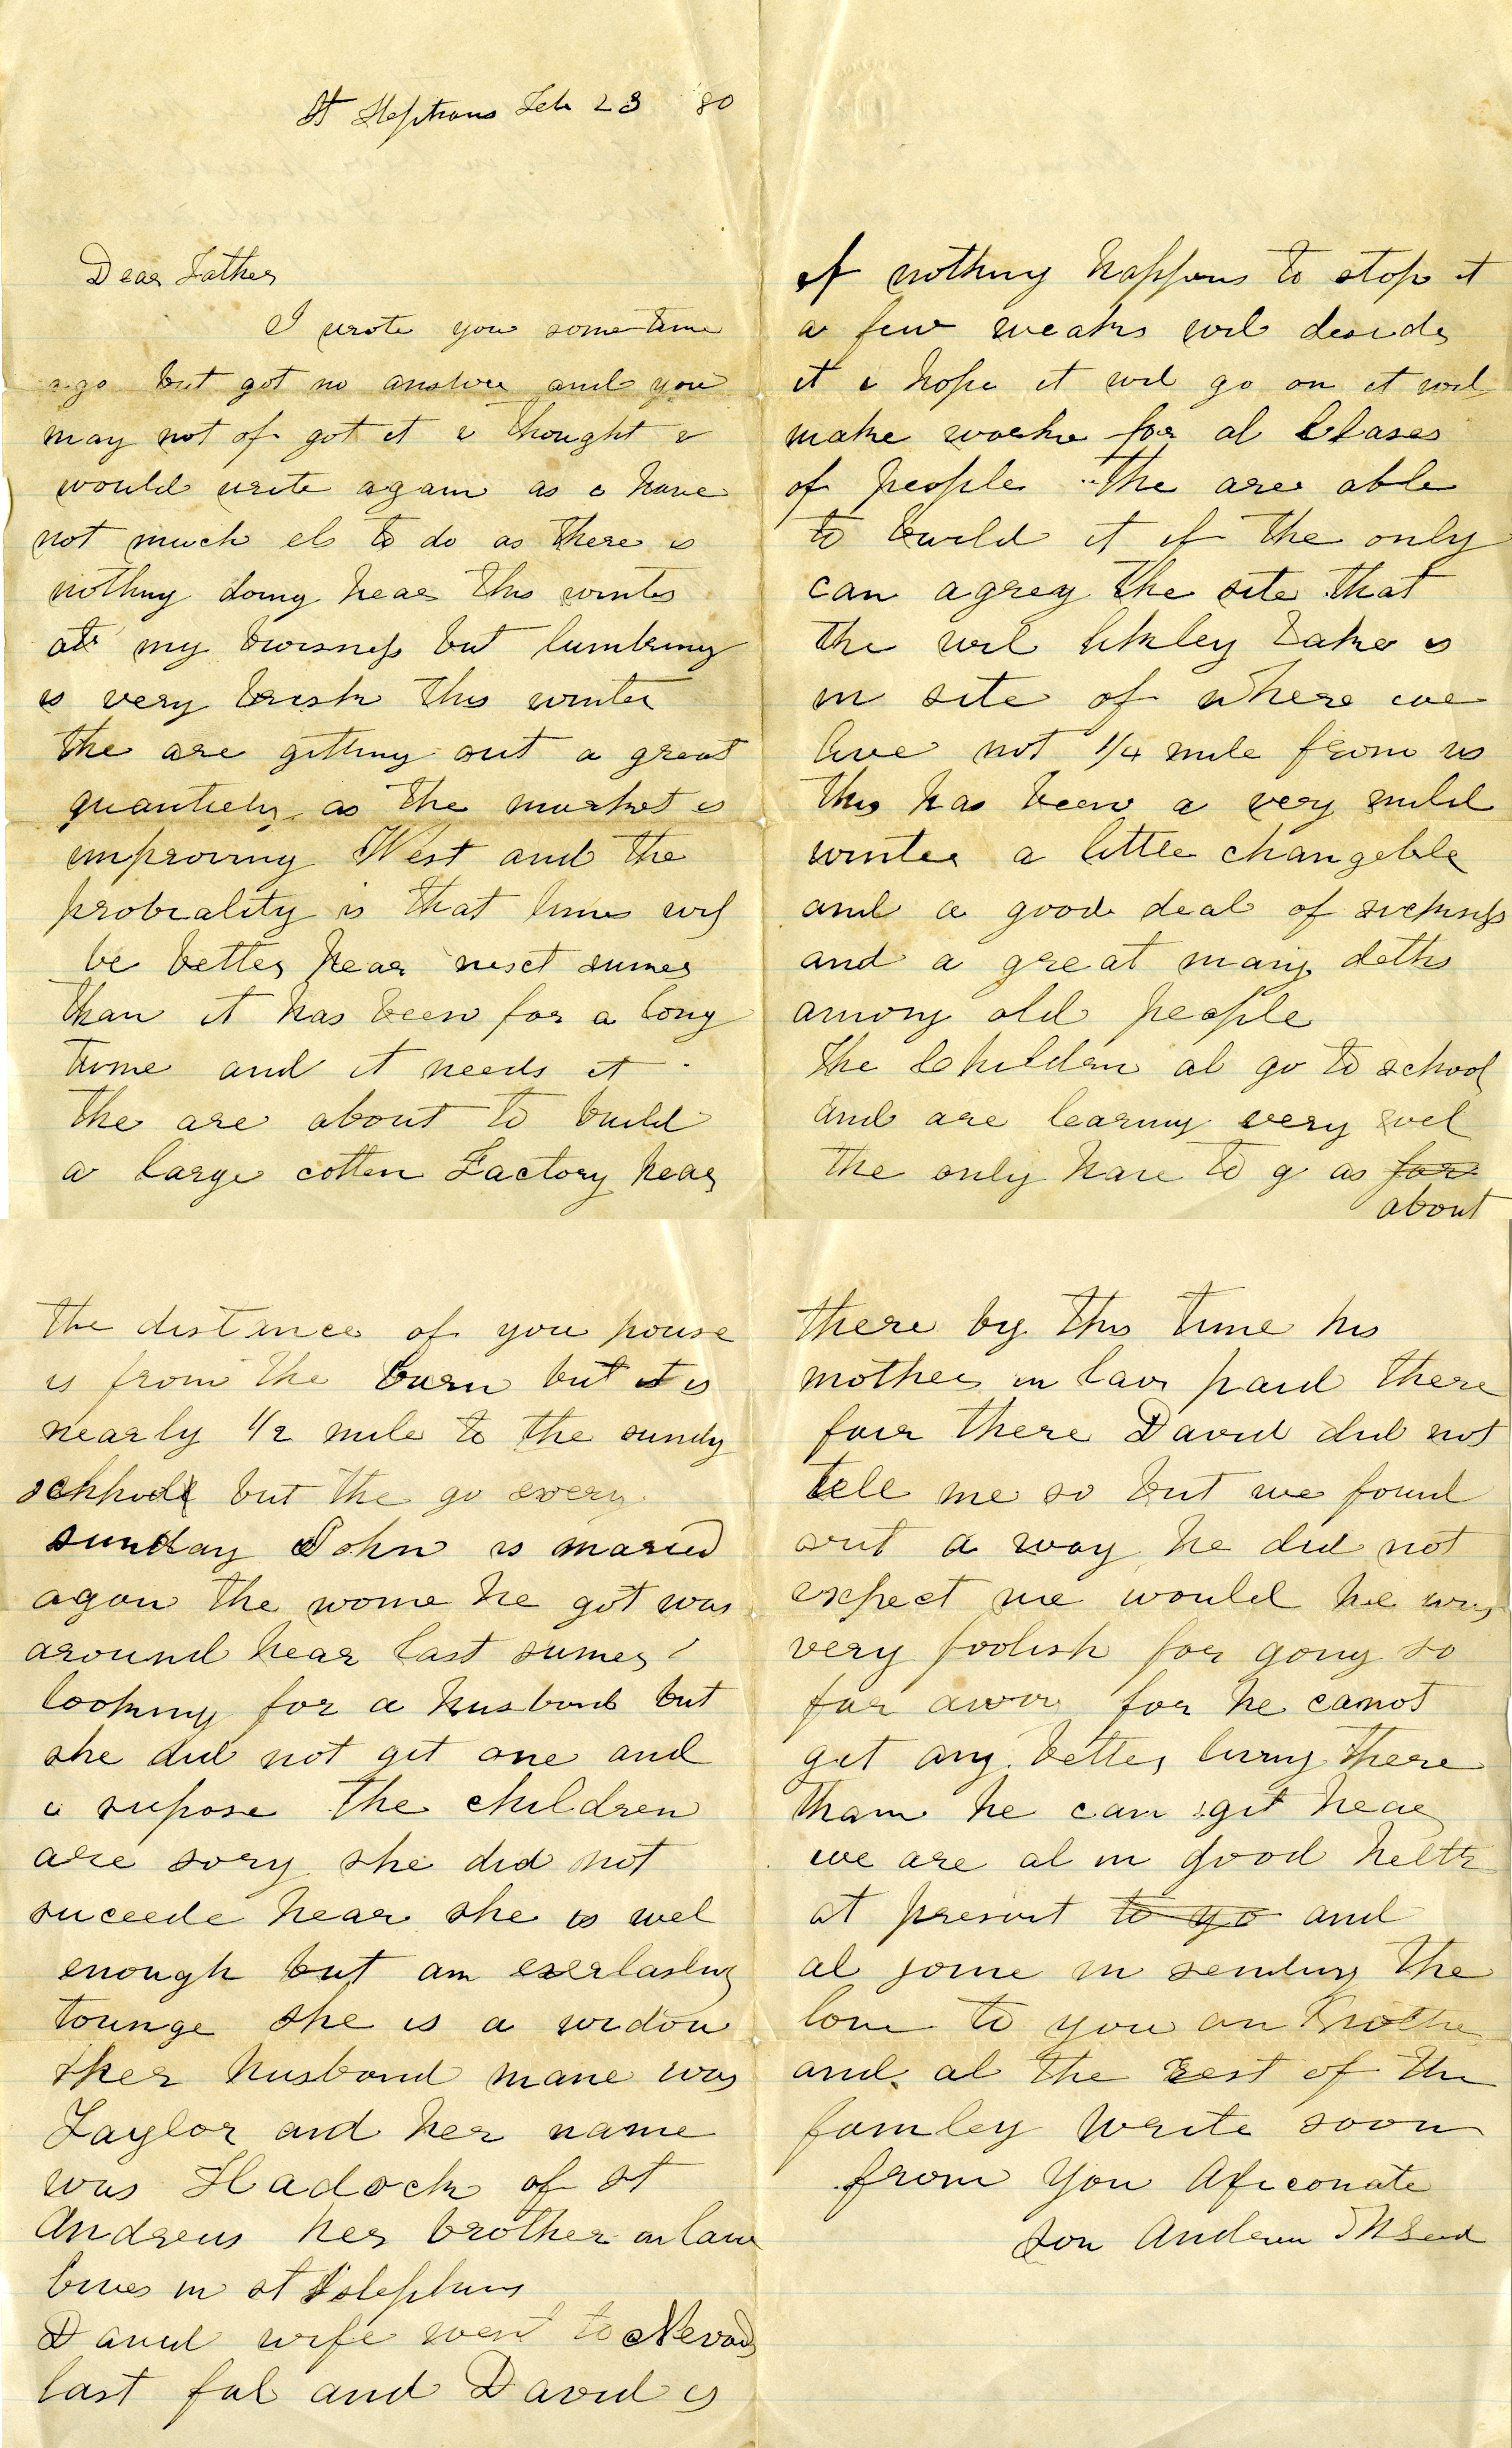 St Stephens Feb 23 80
Dear Father
I wrote you some time
ago but got no answer and you
may not of got it i thought i
would write again as i have
not much els to do as there is
nothing doing hear this winter
at my buisness but lumbring
is very brisk this winter
the are gitting out a great
quantiety as the market is
improving West and the
probiality is that times wil
be better hear next sumer
than it has been for a long
time and it needs it
the are about to build
a large cotten Factory hear
if nothing happens to stop it
a few weaks wil decide
it i hope it wil go on it wil
make worke for al Clases
of people the are able
to build it if the only
can agrey the site that
the wil likley take is
in site of where we
live not 1/4 mile from us
this has been a very mild
winter a little changeble
and a good deal of sickness
and a great many deths
among old people
the Children al go to school
and are learning very wel
the only have to g as far
about
the distance of you house
is from the barn but it is
nearly 1/2 mile to the sundy
schhool but the go every
sunday John is maried
agan the wome he got was
around hear last sumer
looking for a husband but
she did not git one and
i supose the children
are sory she did not
suceede hear she is wel
enough but an everlasting
tounge she is a widow
her husband mane was
Taylor and her name
was Hadock of st
Andrews her brother inlaw
lives in st Stephens
David wife went to Nevada
last fal and David is
there by this time his
mother in law paid there
fair there David did not
tele me so but we found
out a way he did not
expect we would he was
very foolish for going so
far away for he canot
get any better living there
than he can git hear
we are al in good helth
at present to yo and
al joine in sending the
love to you an Mother
and al the rest of the
famley write soon
from You Aficonate
Son Andrew